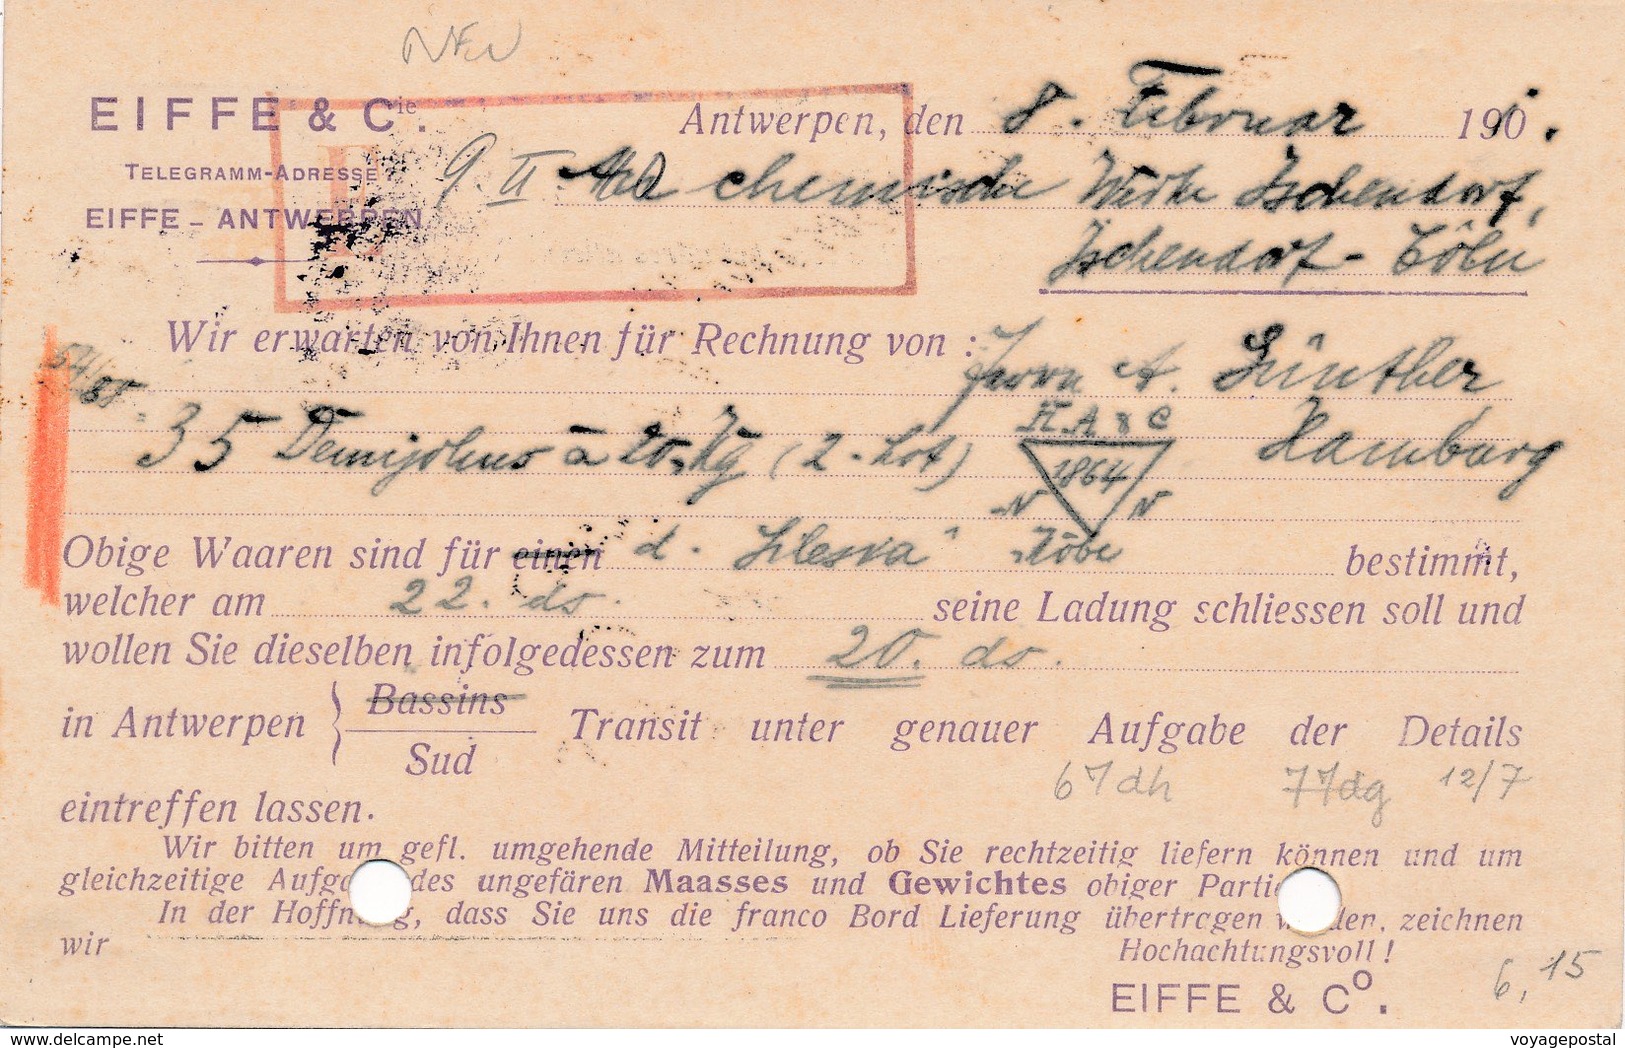 NEU
EIFFE & Cie.
Antwerpen, den 8. Februar 190
TELEGRAMM-ADRESSE
9. II chemische Werke Zschendorf,
EIFFE - ANTWERPEN
Zschendorf - Cöln
Wir erwarten von Ihnen für Rechnung von : Herrn A. Günther
54/85
H. A & C Hamburg
35 Demijohns à 20 Kg (2. Lot) 1864
N N
Kobe
Obige Waaren sind für einen d. "Silesia" bestimmt,
welcher am 22. ds. seine Ladung schliessen soll und
wollen Sie dieselben infolgedessen zum 20. ds.
in Antwerpen } Bassins Transit unter genauer Aufgabe der Details
Sud
67dh 77dg 12/7
eintreffen lassen.
Wir bitten um gefl. umgehende Mitteilung, ob Sie rechtzeitig liefern können und um
gleichzeitige des ungefären Maasses und Gewichtes obiger
In der dass Sie uns die franco Bord Lieferung übertragen zeichnen
wir Hochachtungsvoll !
EIFFE & Co.
6,15
www.delcampe.net
voyagepostal